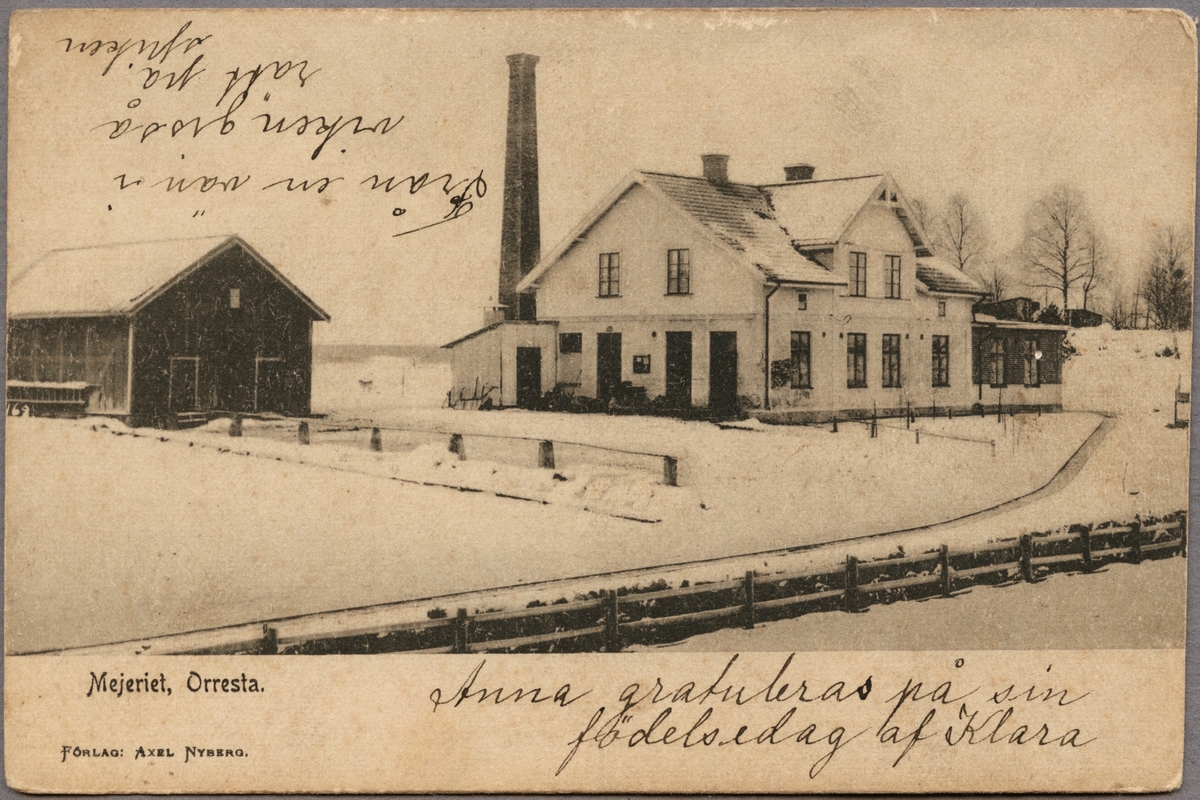 Från en vän i
viken gissa
rätt på
spiken
Mejeriet, Orresta.
Förlag: Axel Nyberg.
Anna gratuleras på sin
födelsedag af Klara